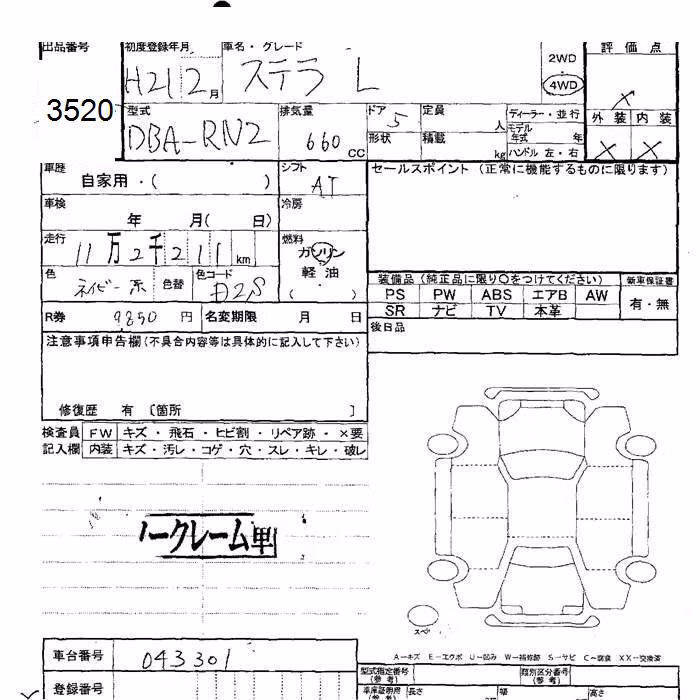 出品番号 初度登録年月 車名・グレード 評価点
H21 2月 ステラ L 2WD・4WD X
3520
型式 排気量 ドア 定員 ディーラー・並行 外装 内装
DBA-RN2 660 CC 5 人 モデル年式 年 X X
形状 積載 kg ハンドル 左・右
車歴 シフト セールスポイント (正常に機能するものに限ります)
自家用・( ) AT
車検 冷房
年 月( 日)
走行 燃料
11万2千211km ガソリン
色 色替 色コード 軽油
ネイビー系 ( )
装備品 (純正品に限り〇をつけてください) 新車保証書
PS PW ABS エアB AW 有・無
SR ナビ TV 本革
R券 9850 円 名変期限 月 日 後日品
注意事項申告欄(不具合内容等は具体的に記入して下さい)
修復歴 有 〔箇所 〕
検査員 FW キズ・飛石・ヒビ割・リペア跡・×要
記入欄 内装 キズ・汚レ・コゲ・穴・スレ・キレ・破レ
ノークレーム車
スペア
A―キズ E―エクボ U―凹み W―補修跡 S―サビ C―腐食 XX―交換済
車台番号 043301
型式指定番号(参考) 類別区分番号(参考)
登録番号 長さ 幅 高さ